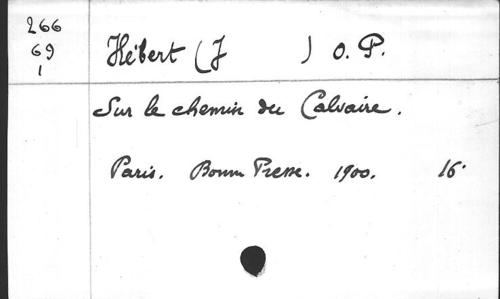 266
69
1
Hébert (J ) O. P.
Sur le chemin du Calvaire.
Paris. Bonne Presse. 1900. 16°